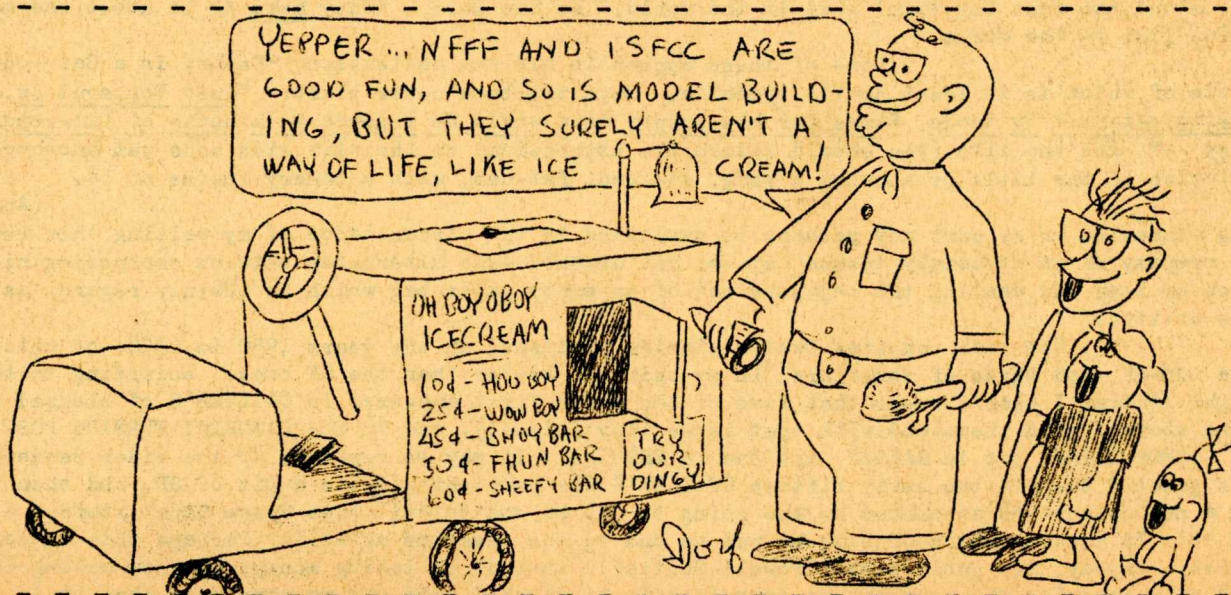 YEPPER... NFFF AND ISFCC ARE
GOOD FUN, AND SO IS MODEL BUILD-
ING, BUT THEY SURELY AREN'T A
WAY OF LIFE, LIKE ICE CREAM!
OH BOY O BOY
ICECREAM
10¢ - HOO BOY
25¢ - WOW BOY
45¢ - BHOY BAR
50¢ - FHUN BAR
60¢ - SHEEFY BAR
TRY
OUR
DINGY
Dorf